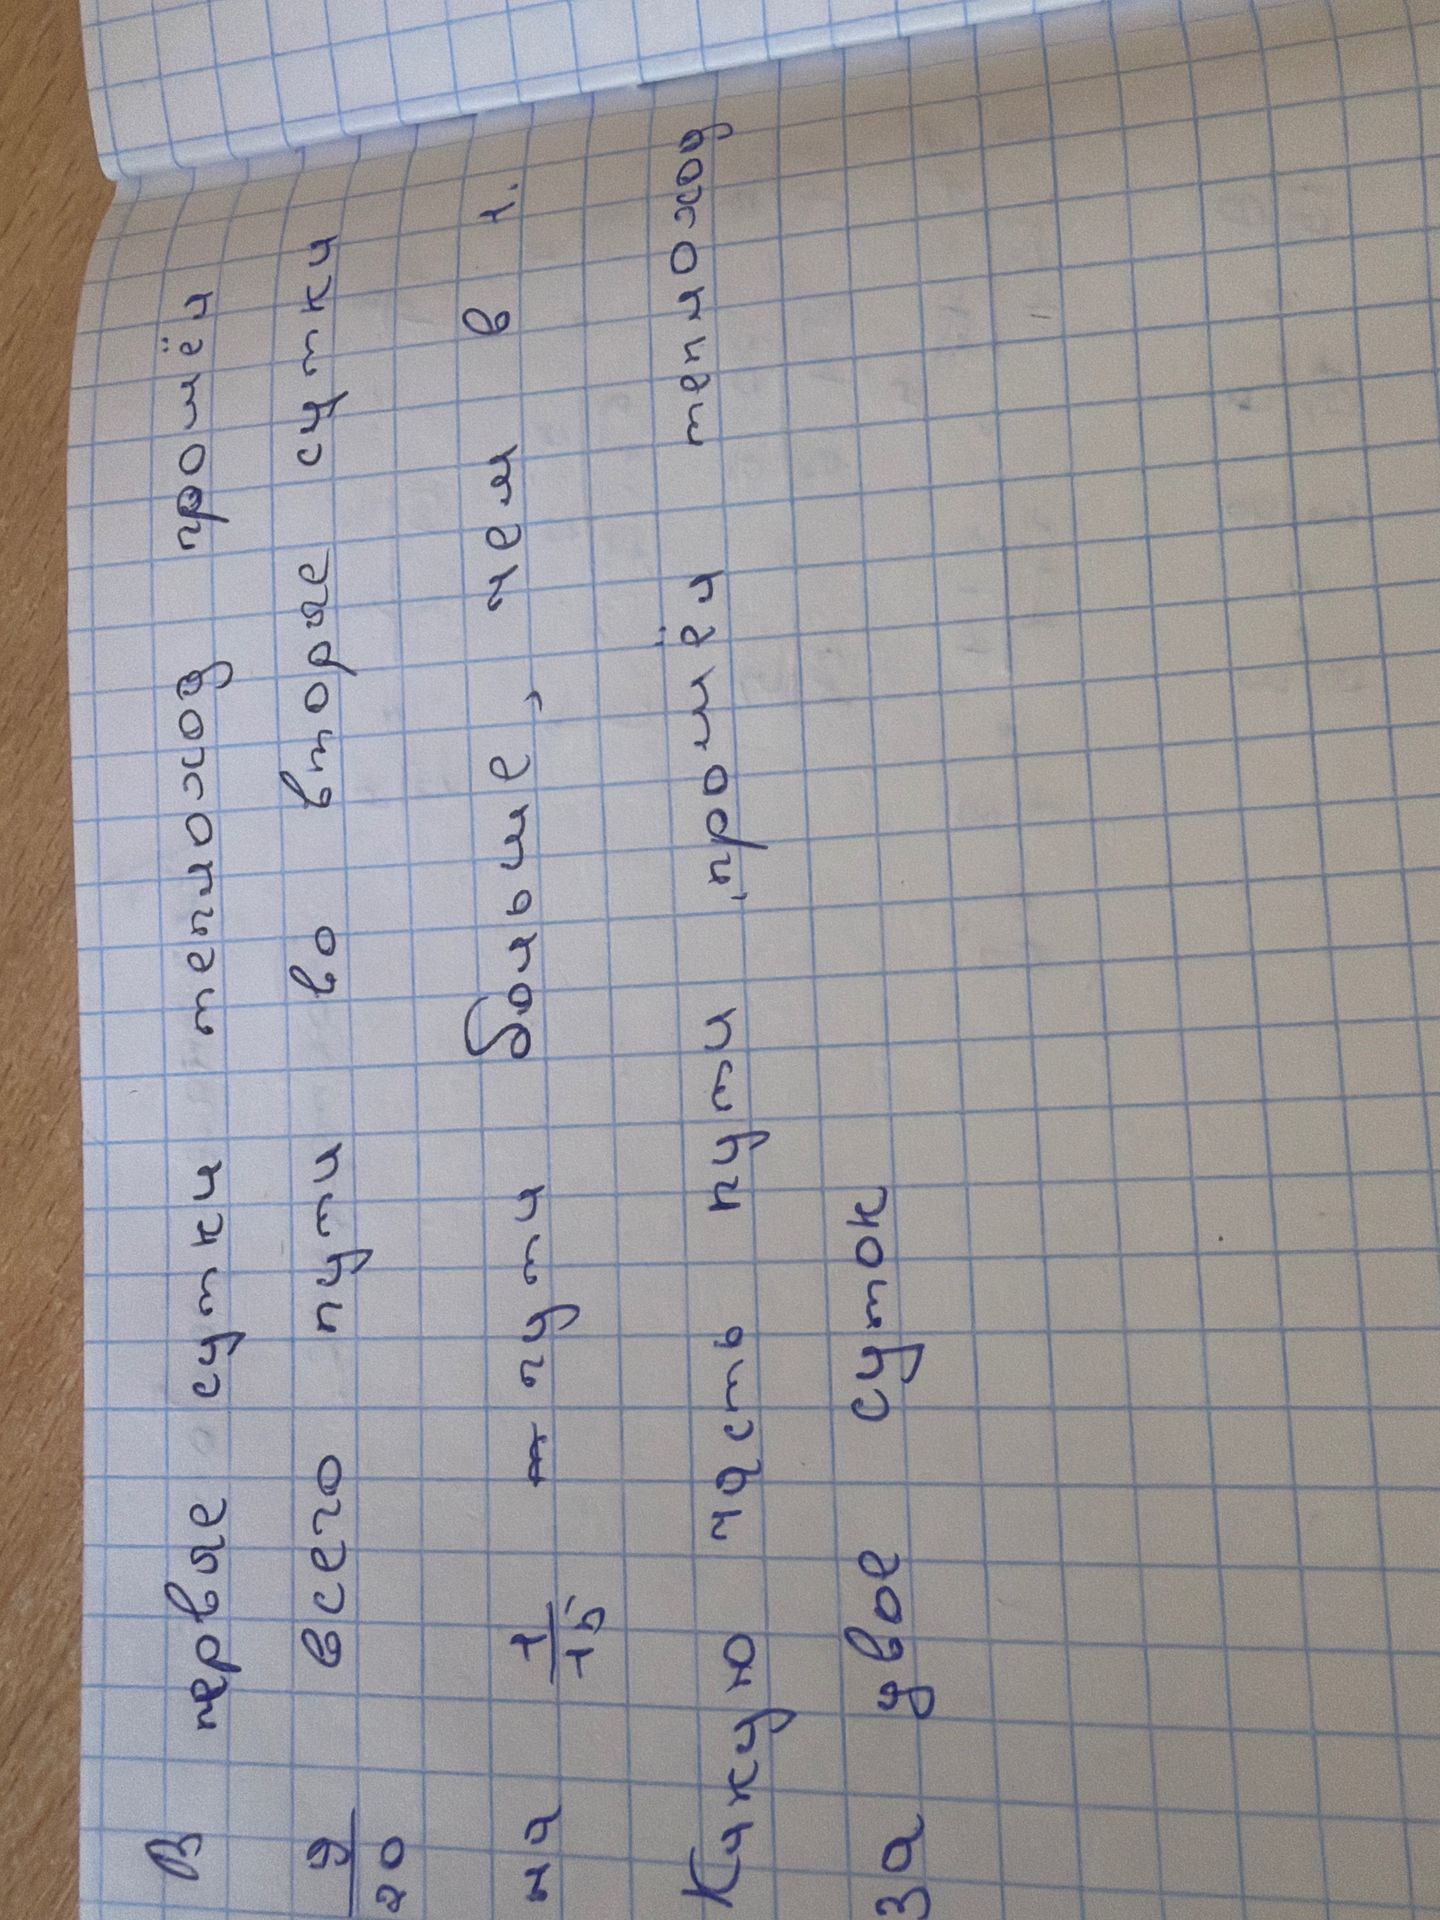 В первые сутки теплоход прошёл
9/20 всего пути во вторые сутки
на 1/15 пути больше, чем в 1.
Какую часть пути прошёл теплоход
за двое суток